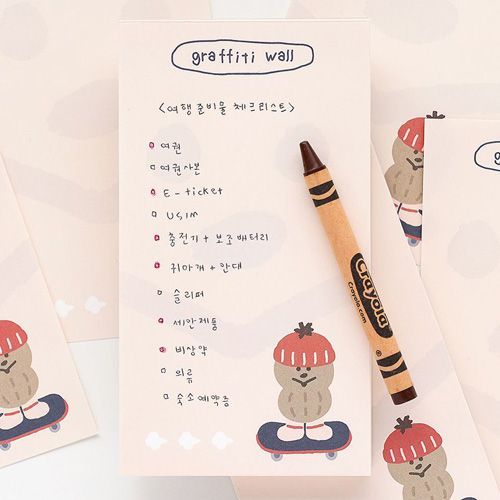 graffiti wall
<여행준비물 체크리스트>
여권
여권사본
E-ticket
USIM
충전기 + 보조배터리
귀마개 + 안대
슬리퍼
세안제품
비상약
의류
숙소예약증
Crayola
Crayola.com
graf